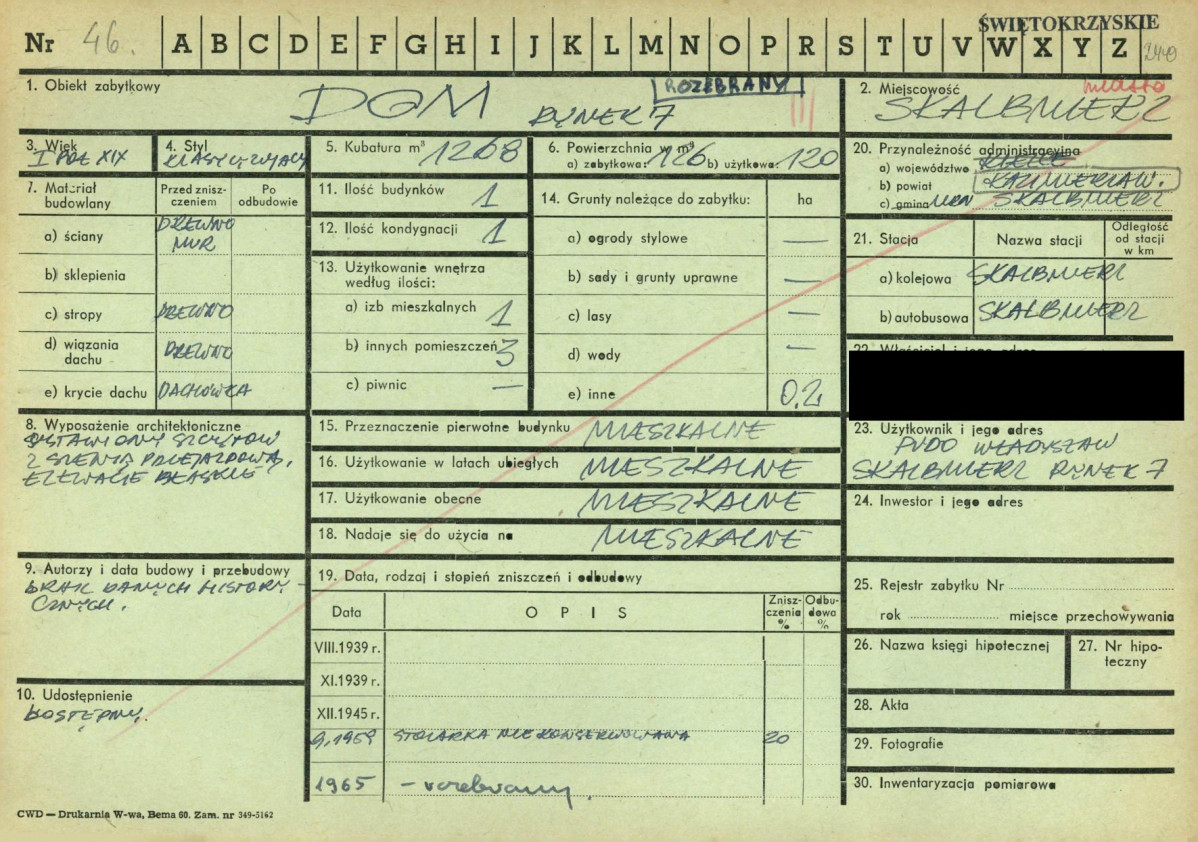 ŚWIĘTOKRZYSKIE
Nr 46. A B C D E F G H I J K L M N O P R S T U V W X Y Z 2449
1. Obiekt zabytkowy
DOM RYNEK 7
ROZEBRANY
III
2. Miejscowość
miasto
SKALBMIERZ
3. Wiek
I POŁ XIX
4. Styl
KLASYCYZUJĄCY
5. Kubatura m³ 1268
6. Powierzchnia w m²
a) zabytkowa: 126 b) użytkowa: 120
20. Przynależność administracyjna
a) województwo KIELCE
b) powiat KAZIMIERZA W.
c) gmina MRN SKALBMIERZ
7. Materiał budowlany
Przed zniszczeniem
Po odbudowie
a) ściany DREWNO MUR
b) sklepienia
c) stropy DREWNO
d) wiązania dachu DREWNO
e) krycie dachu DACHÓWKA
11. Ilość budynków 1
12. Ilość kondygnacji 1
13. Użytkowanie wnętrza według ilości:
a) izb mieszkalnych 1
b) innych pomieszczeń 3
c) piwnic —
14. Grunty należące do zabytku: ha
a) ogrody stylowe —
b) sady i grunty uprawne —
c) lasy —
d) wody —
e) inne 0,2
21. Stacja
Nazwa stacji
Odległość od stacji w km
a) kolejowa SKALBMIERZ
b) autobusowa SKALBMIERZ
8. Wyposażenie architektoniczne
USTAWIONY SZCZYTOWO
Z SIENIĄ PRZEJAZDOWĄ,
ELEWACJE PŁASKIE
15. Przeznaczenie pierwotne budynku MIESZKALNE
16. Użytkowanie w latach ubiegłych MIESZKALNE
17. Użytkowanie obecne MIESZKALNE
18. Nadaje się do użycia na MIESZKALNE
23. Użytkownik i jego adres
PUDO WŁADYSŁAW
SKALBMIERZ RYNEK 7
24. Inwestor i jego adres
9. Autorzy i data budowy i przebudowy
BRAK DANYCH HISTORY-
CZNYCH.
10. Udostępnienie
DOSTĘPNY.
19. Data, rodzaj i stopień zniszczeń i odbudowy
Data
OPIS
Zniszczenia %
Odbudowa %
VIII.1939 r.
XI.1939 r.
XII.1945 r.
9.1959 STOLARKA NIE KONSERWOWANA 20
1965 – rozebrany.
25. Rejestr zabytku Nr
rok miejsce przechowywania
26. Nazwa księgi hipotecznej
27. Nr hipoteczny
28. Akta
29. Fotografie
30. Inwentaryzacja pomiarowa
CWD — Drukarnia W-wa, Bema 60. Zam. nr 349-5162